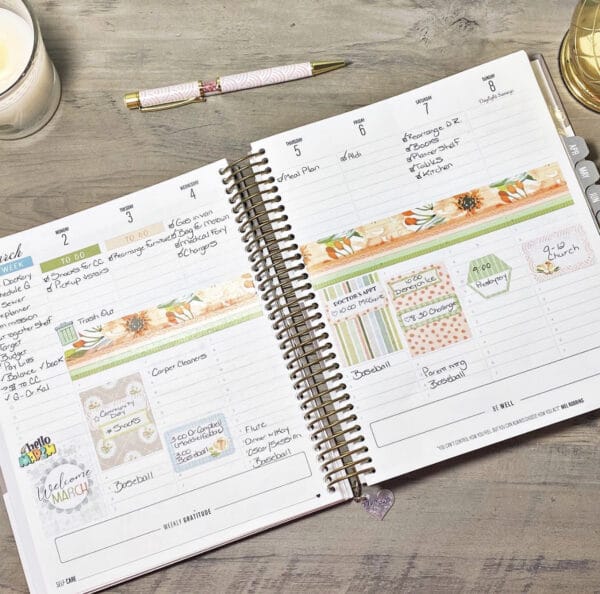 arch
WEEK
MONDAY
2
TUESDAY
3
WEDNESDAY
4
THURSDAY
5
FRIDAY
6
SATURDAY
7
SUNDAY
8
Daylight Savings
TO DO
TO DO
Snacks for CC
Rearrange Furniture
Gas in van
Medical Form
Chargers
Meal Plan
Aldi
Rearrange D.R.
Books
Planner Shelf
Tubs
Kitchen
planner
mission
together shelf
Target
Budget
Pay bills
Balance book
$ to CC
G-Or Kal
Trash Out
Carpet Cleaners
Community
Day
Snacks
Baseball
3:00 Dr. Campbell
Baseball
Flute
Baseball
DOCTOR'S APPT
10:00 McGuire
Baseball
Dance on Ice
8:30
Baseball
9:00
Presbytery
9-12
Church
hello
Welcome
MARCH
WEEKLY GRATITUDE
SELF CARE
BE WELL
"YOU CAN'T CONTROL HOW YOU FEEL, BUT YOU CAN ALWAYS CHOOSE HOW YOU ACT." MEL ROBBINS
APR
MAY
JUN